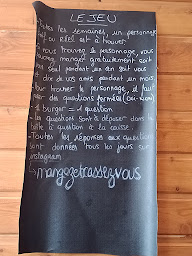 LE JEU
- Toutes les semaines, un personnage
fictif ou réel est à trouver.
- Si vous trouvez le personnage, vous
pouvez manger gratuitement soit
seul pendant un an soit vous
et dix de vos amis pendant un mois
- Pour trouver le personnage, il faut
poser des questions fermées (oui-non)
1 burger = 1 question
- les questions sont à déposer dans la
boîte à question à la caisse.
- Toutes les réponses aux questions
sont données tous les jours sur
instagram
↳ mangezetcassezvous